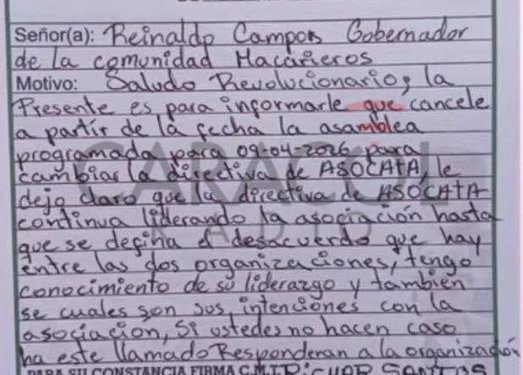 Señor(a): Reinaldo Campos Gobernador
de la comunidad Macañieros
Motivo: Saludo Revolucionario, la
Presente es para informarle que cancele
a partir de la fecha la asamblea
programada para 09-04-2026 para
cambiar la directiva de ASOCATA, le
dejo claro que la directiva de ASOCATA
continua liderando la asociación hasta
que se defina el desacuerdo que hay
entre las dos organizaciones, tengo
conocimiento de su liderazgo y también
se cuales son sus intenciones con la
asociación, Si ustedes no hacen caso
ha este llamado Responderan a la organización
PARA SU CONSTANCIA FIRMA CMTE: 
CARACOL
RADIO